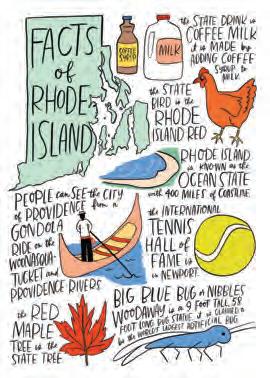 FACTS
of
RHODE
ISLAND
COFFEE
SYRUP
MILK
the STATE DRINK is
COFFEE MILK
it is MADE by
ADDING COFFEE
SYRUP to
MILK
the STATE
BIRD is the
RHODE
ISLAND RED
RHODE ISLAND
is KNOWN as the
OCEAN STATE
with 400 MILES of COASTLINE
PEOPLE can SEE the CITY
of PROVIDENCE from a
GONDOLA
RIDE on the
WOONASQUA-
TUCKET and
PROVIDENCE RIVERS
the INTERNATIONAL
TENNIS
HALL of
FAME is
in NEWPORT.
the RED
MAPLE
TREE is the
STATE TREE
BIG BLUE BUG or NIBBLES
WOODAWAY is a 9 FOOT TALL, 58
FOOT LONG BUG STATUE. it is CLAIMED to
be the WORLD'S LARGEST ARTIFICIAL BUG